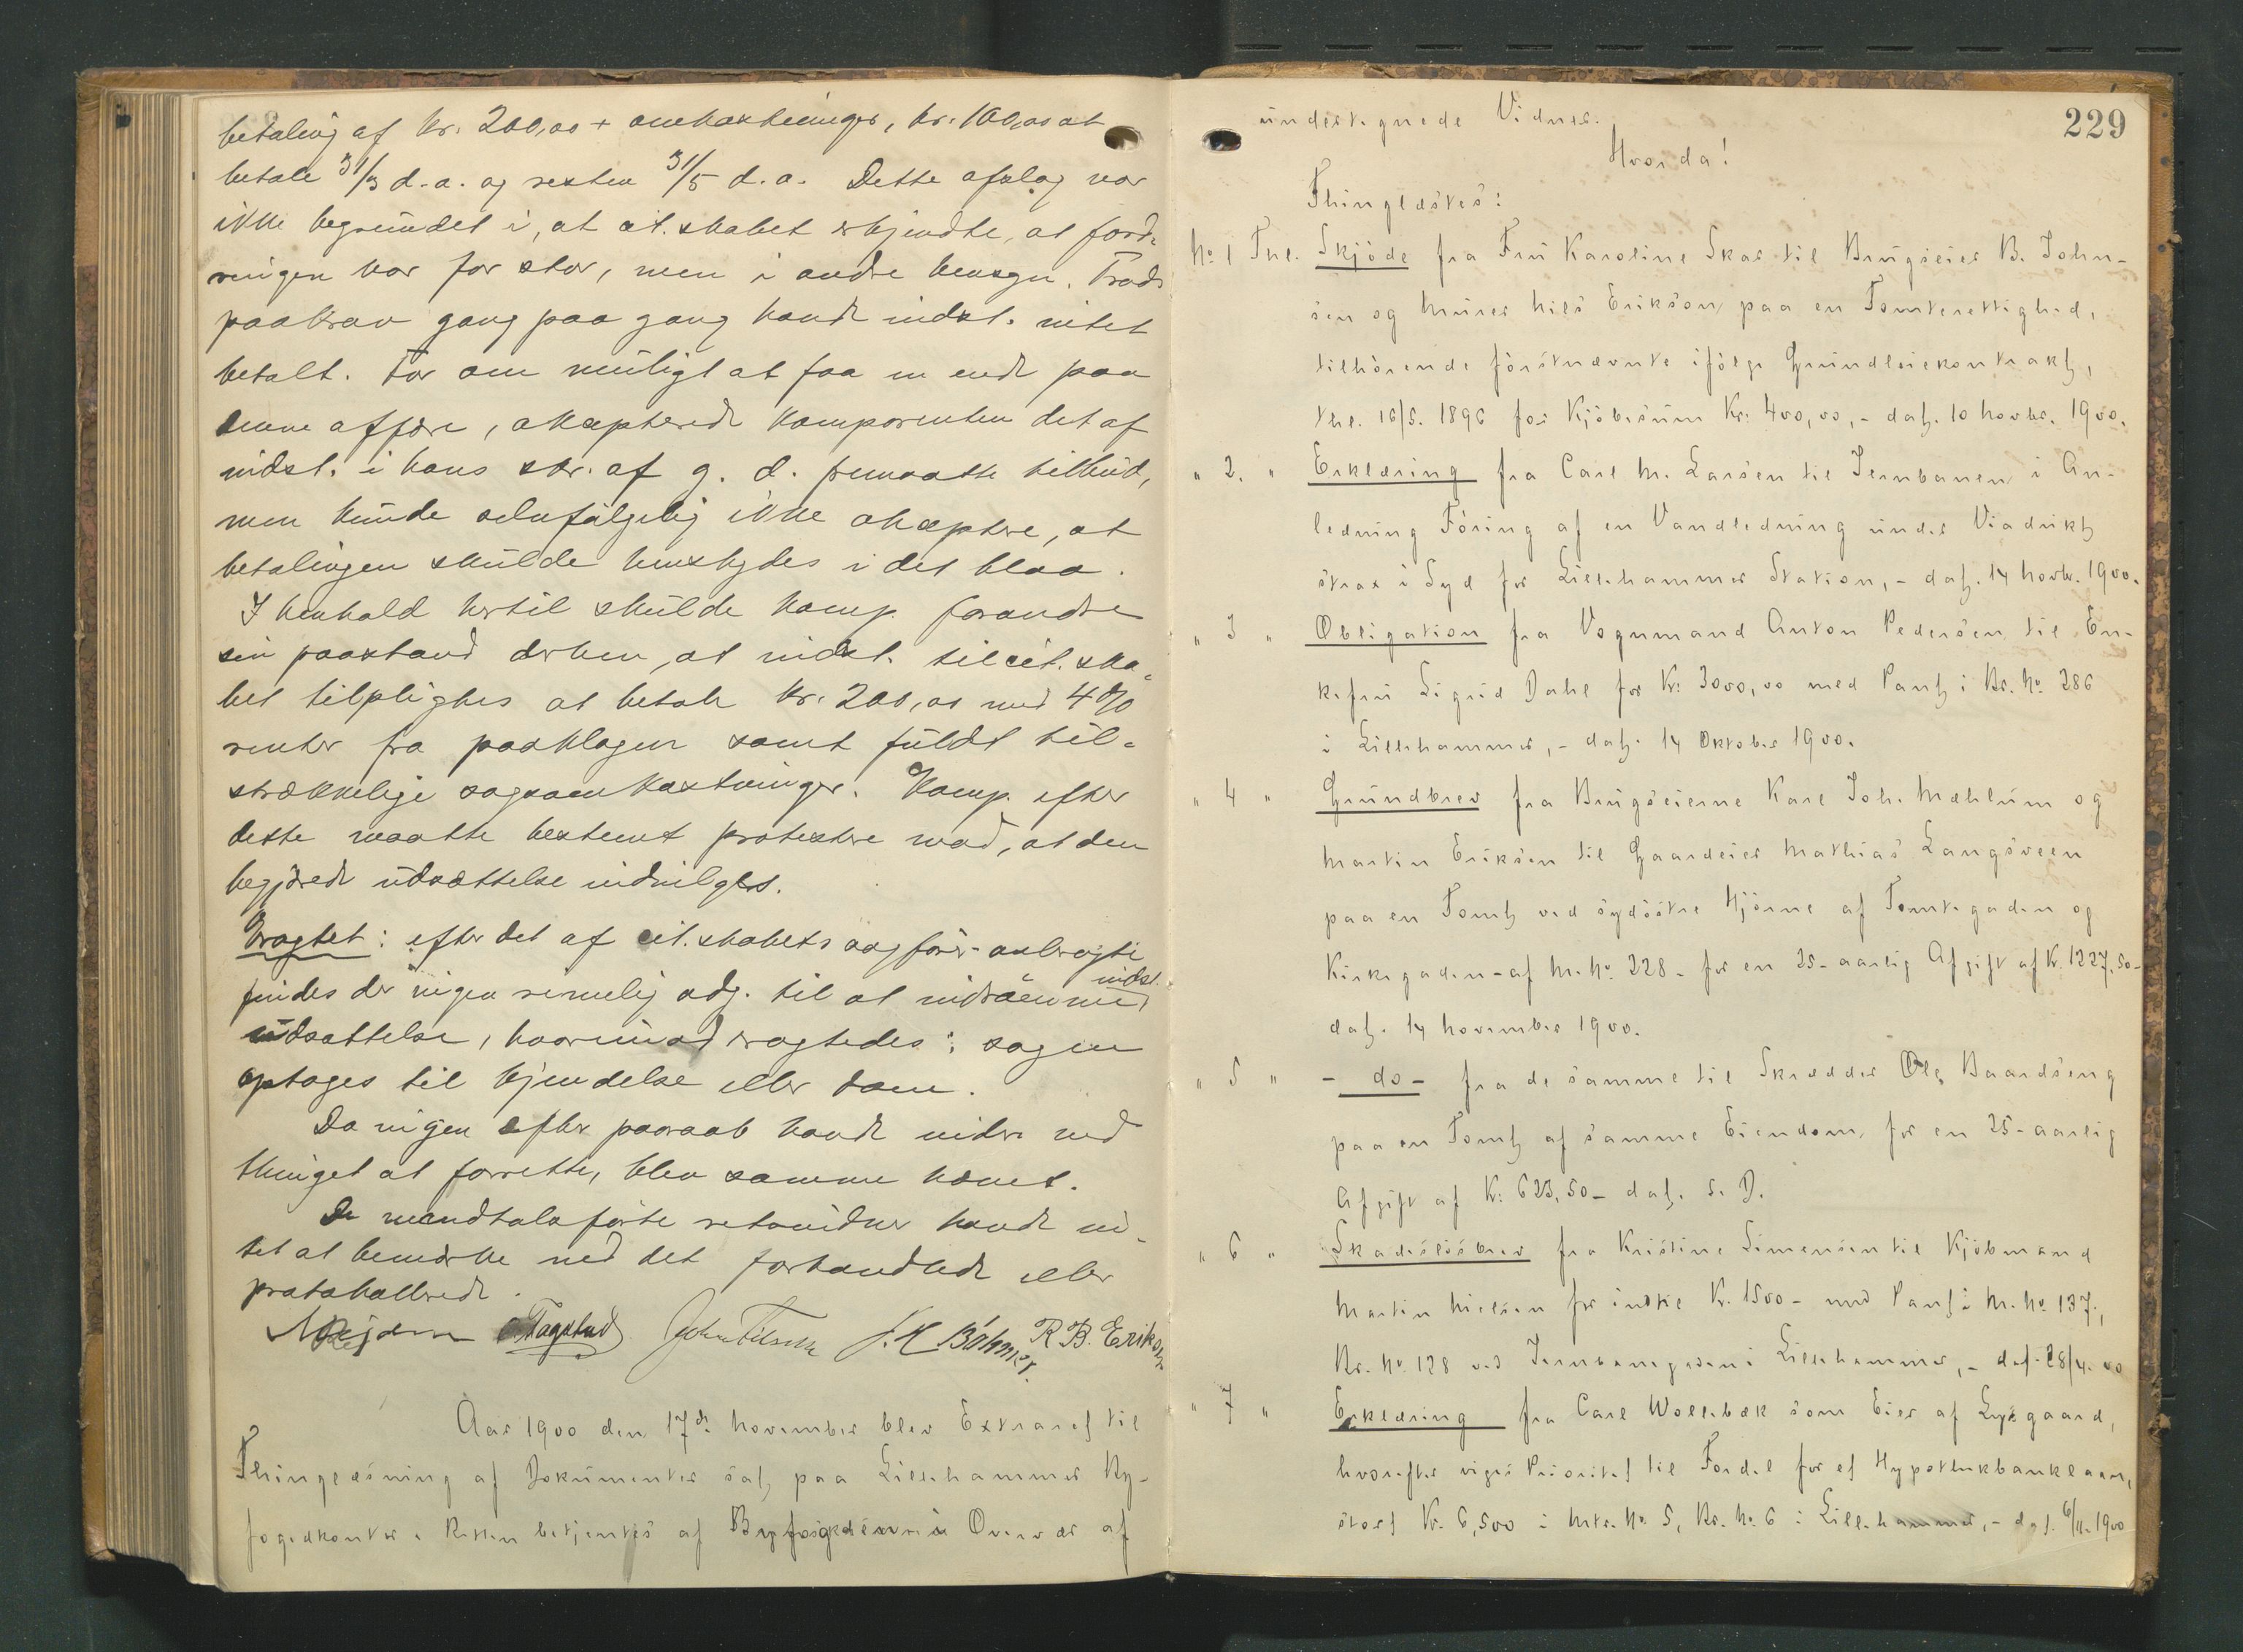 betaling af kr. 200,00 + omkostninger, kr. 100,00 at
betale 31/3 d. a. og resten 31/5 d. a. Dette afslag var
ikke begrundet i, at cit. skabet erkjendte, at ford-
ringen var for stor, men i andre hensyn. Trods
paakrav gang paa gang havde indst. intet
betalt. For om muligt at faa en ende paa
denne affære, akcepterede komparenten det af
indst. i hans skr. af g. d. fremsatte tilbud,
men kunde selvfølgelig ikke akceptere, at
betalingen skulde henskydes i det blaa.
I henhold hertil skulde komp. forandre
sin paastand derhen, at indst. til cit. ska-
bet tilpligtes at betale kr. 200,00 med 4%
renter fra paaklagen samt fuldt til-
strækkelige sagsomkostninger. Komp. efter
dette maatte bestemt protestere mod, at den
begjærede udsættelse indvilges.
Eragtet: efter det af cit. skabets sagfør. anbragte
indst.
findes der ingen rimelig adg. til at indrømme
udsættelse, hvorimod eragtedes: sagen
optages til kjendelse eller dom.
Da ingen efter paaraab havde videre ved
thinget at forrette, blev samme hævet.
De mandtalsførte retsvidner havde in-
tet at bemærke ved det forhandlede eller
protokollerede.
Tagstad John Nilsen J. H. Böhmer R B. Eriksen
Aar 1900 den 17de November blev Extraret til
Thinglæsning af Dokumenter sat paa Lillehammer By-
fogedkontor. Retten betjentes af Byfogden i Overvær af
229
undertegnede Vidner.
Hvorda!
Thinglæstes:
No. 1 Thl. Skjøde fra Fru Karoline Skar til Brugseier B. John-
sen og Murer Nils Erikson paa en Tomterettighed,
tilhørende førstnævnte ifølge Grundleiekontrakt,
thl. 16/5. 1896 for Kjøbesum Kr. 400,00, - dat. 10 Novbr. 1900.
" 2. " Erklæring fra Carl M. Larsen til Jernbanen i An-
ledning Føring af en Vandledning under Viadukt
strax i Syd for Lillehammer Station, - dat. 14 Novbr. 1900.
" 3 " Obligation fra Vognmand Anton Pedersen til En-
kefru Sigrid Dahl for Kr. 3000,00 med Pant i Br. No. 286
i Lillehammer, - dat. 14 Oktober 1900.
" 4 " Grundbrev fra Brugseierne Karl Joh. Mæhlum og
Martin Eriksen til Gaardeier Mathias Langsveen
paa en Tomt ved sydøstre Hjørne af Tomtegaden og
Kirkegaden - af M. No. 228 - for en 25-aarlig Afgift af Kr. 1227,50 -
dat. 14 November 1900.
" 5 " - do - fra de samme til Skrædder Ole Baardseng
paa en Tomt af samme Eiendom for en 25-aarlig
Afgift af Kr. 623,50 - dat. S. D.
" 6 " Skadesløsbrev fra Kristine Simensen til Kjøbmand
Martin Nielsen for indtil Kr. 1500 - med Pant i M. No. 137,
Br. No. 128 ved Jernbanegaden i Lillehammer, - dat. 28/4. 00
" 7 " Erklæring fra Carl Wollebæk som Eier af Lysgaard,
hvorefter viges Prioritet til Fordel for et Hypothekbanklaan,
stort Kr. 6,500 i Mtr. No. 5, Br. No. 6 i Lillehammer, - dat. 6/11. 1900